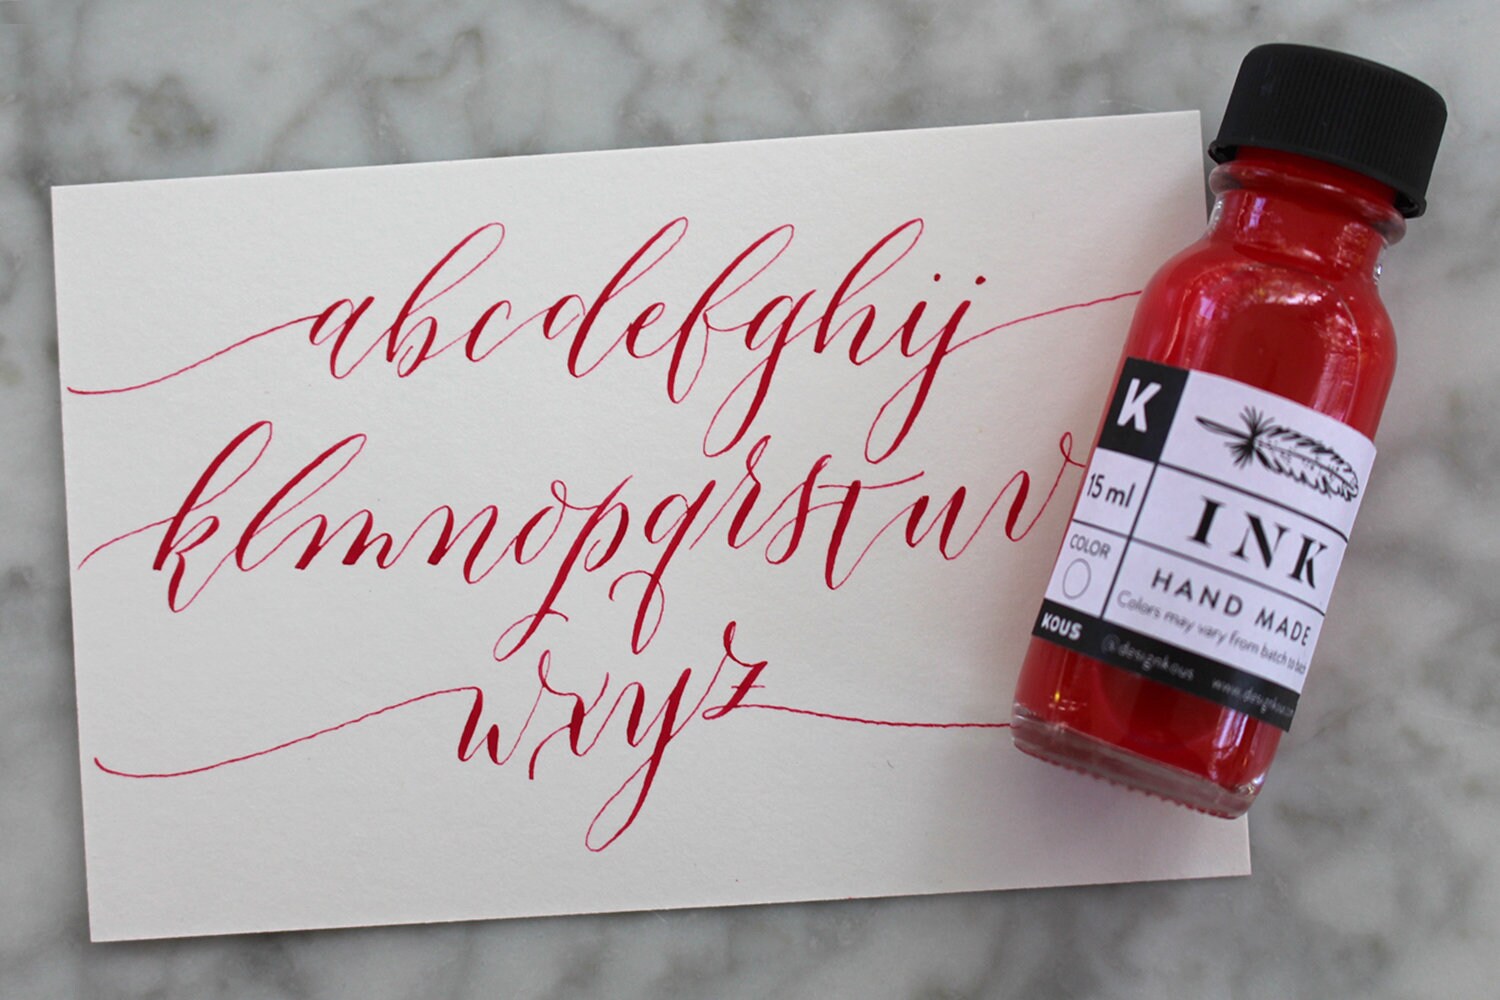 abcdefghij
klmnopqrstuv
wxyz
K
15 ml
INK
COLOR
HAND MADE
Colors may vary from batch to batch
KOUS @designkous www.designkous